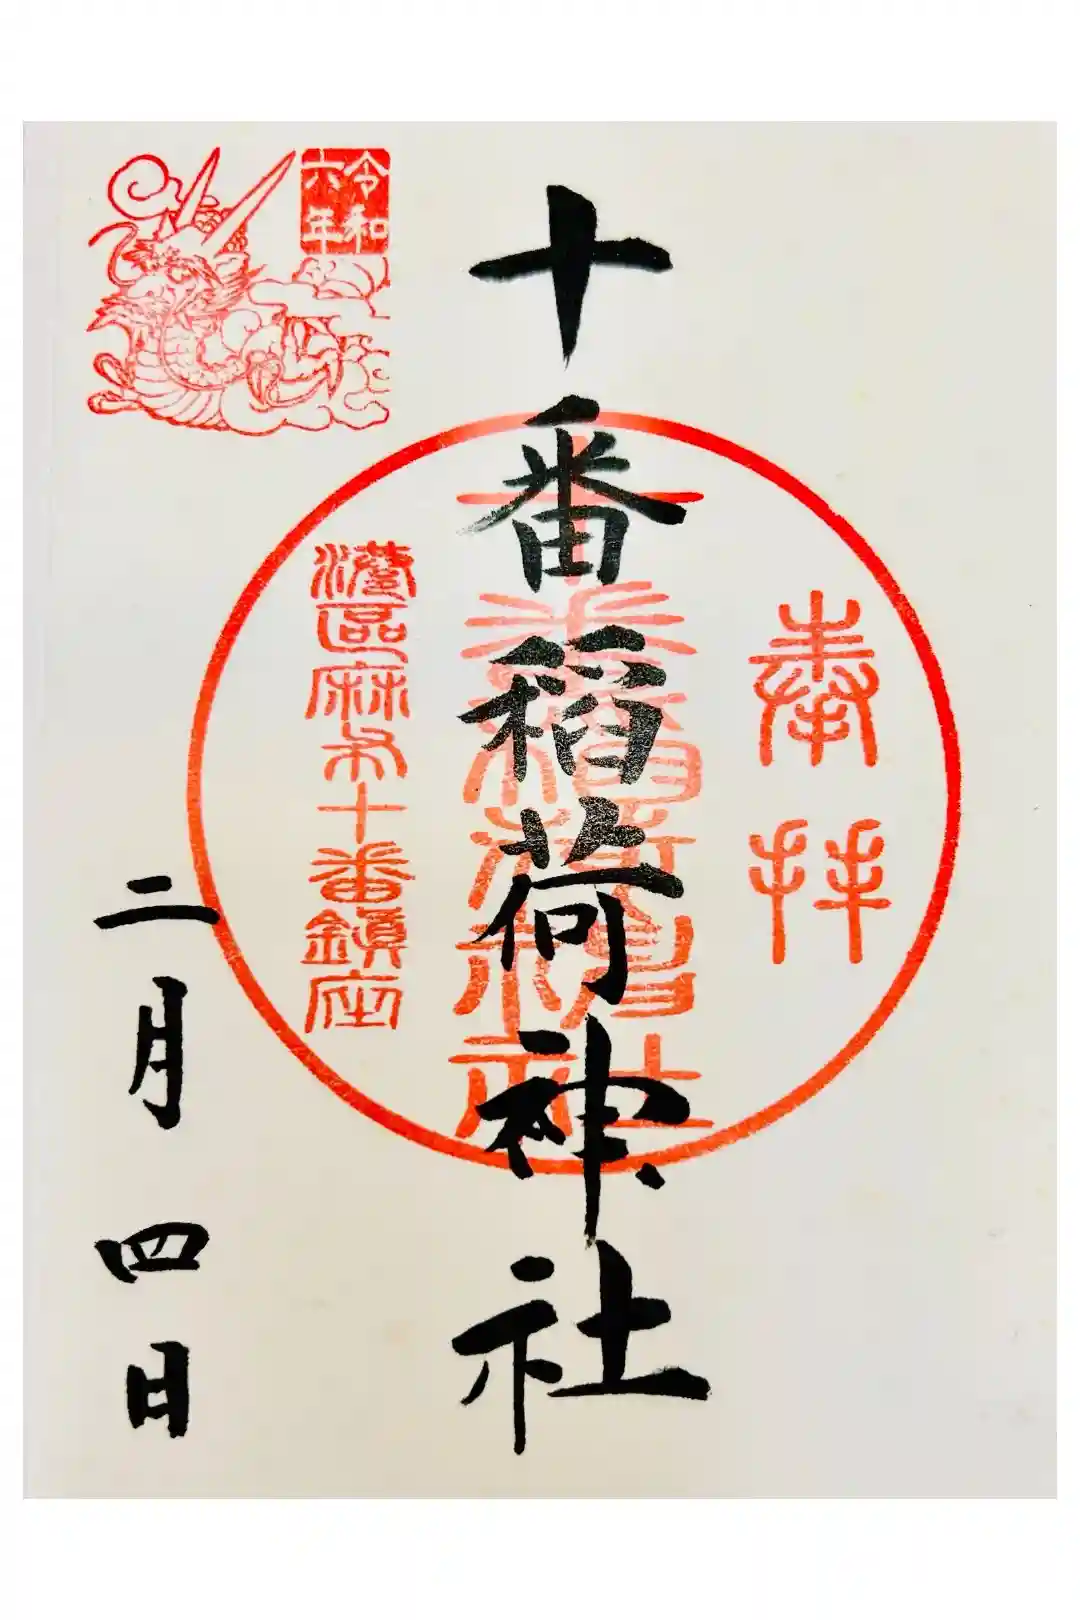 奉拝
十番稲荷神社
十番稲荷神社
港區麻布十番鎮座
令和
六年
二月四日